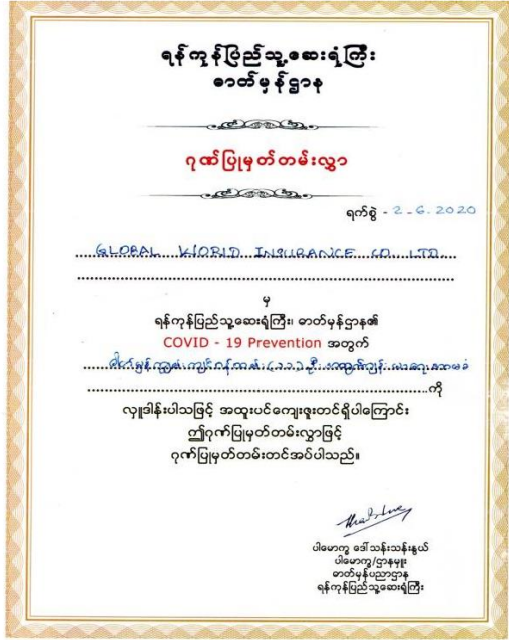 ရန်ကုန်ပြည်သူ့ဆေးရုံကြီး
ဓာတ်မှန်ဌာန
ဂုဏ်ပြုမှတ်တမ်းလွှာ
ရက်စွဲ - 2 - 6. 2020
GLOBAL WORLD INSURANCE CO LTD
မှ
ရန်ကုန်ပြည်သူ့ဆေးရုံကြီး၊ ဓာတ်မှန်ဌာန၏
COVID - 19 Prevention အတွက်
ကို
လှူဒါန်းပါသဖြင့် အထူးပင်ကျေးဇူးတင်ရှိပါကြောင်း
ဤဂုဏ်ပြုမှတ်တမ်းလွှာဖြင့်
ဂုဏ်ပြုမှတ်တမ်းတင်အပ်ပါသည်။
ပါမောက္ခ ဒေါ်သန်းသန်းနွယ်
ပါမောက္ခ/ဌာနမှူး
ဓာတ်မှန်ပညာဌာန
ရန်ကုန်ပြည်သူ့ဆေးရုံကြီး